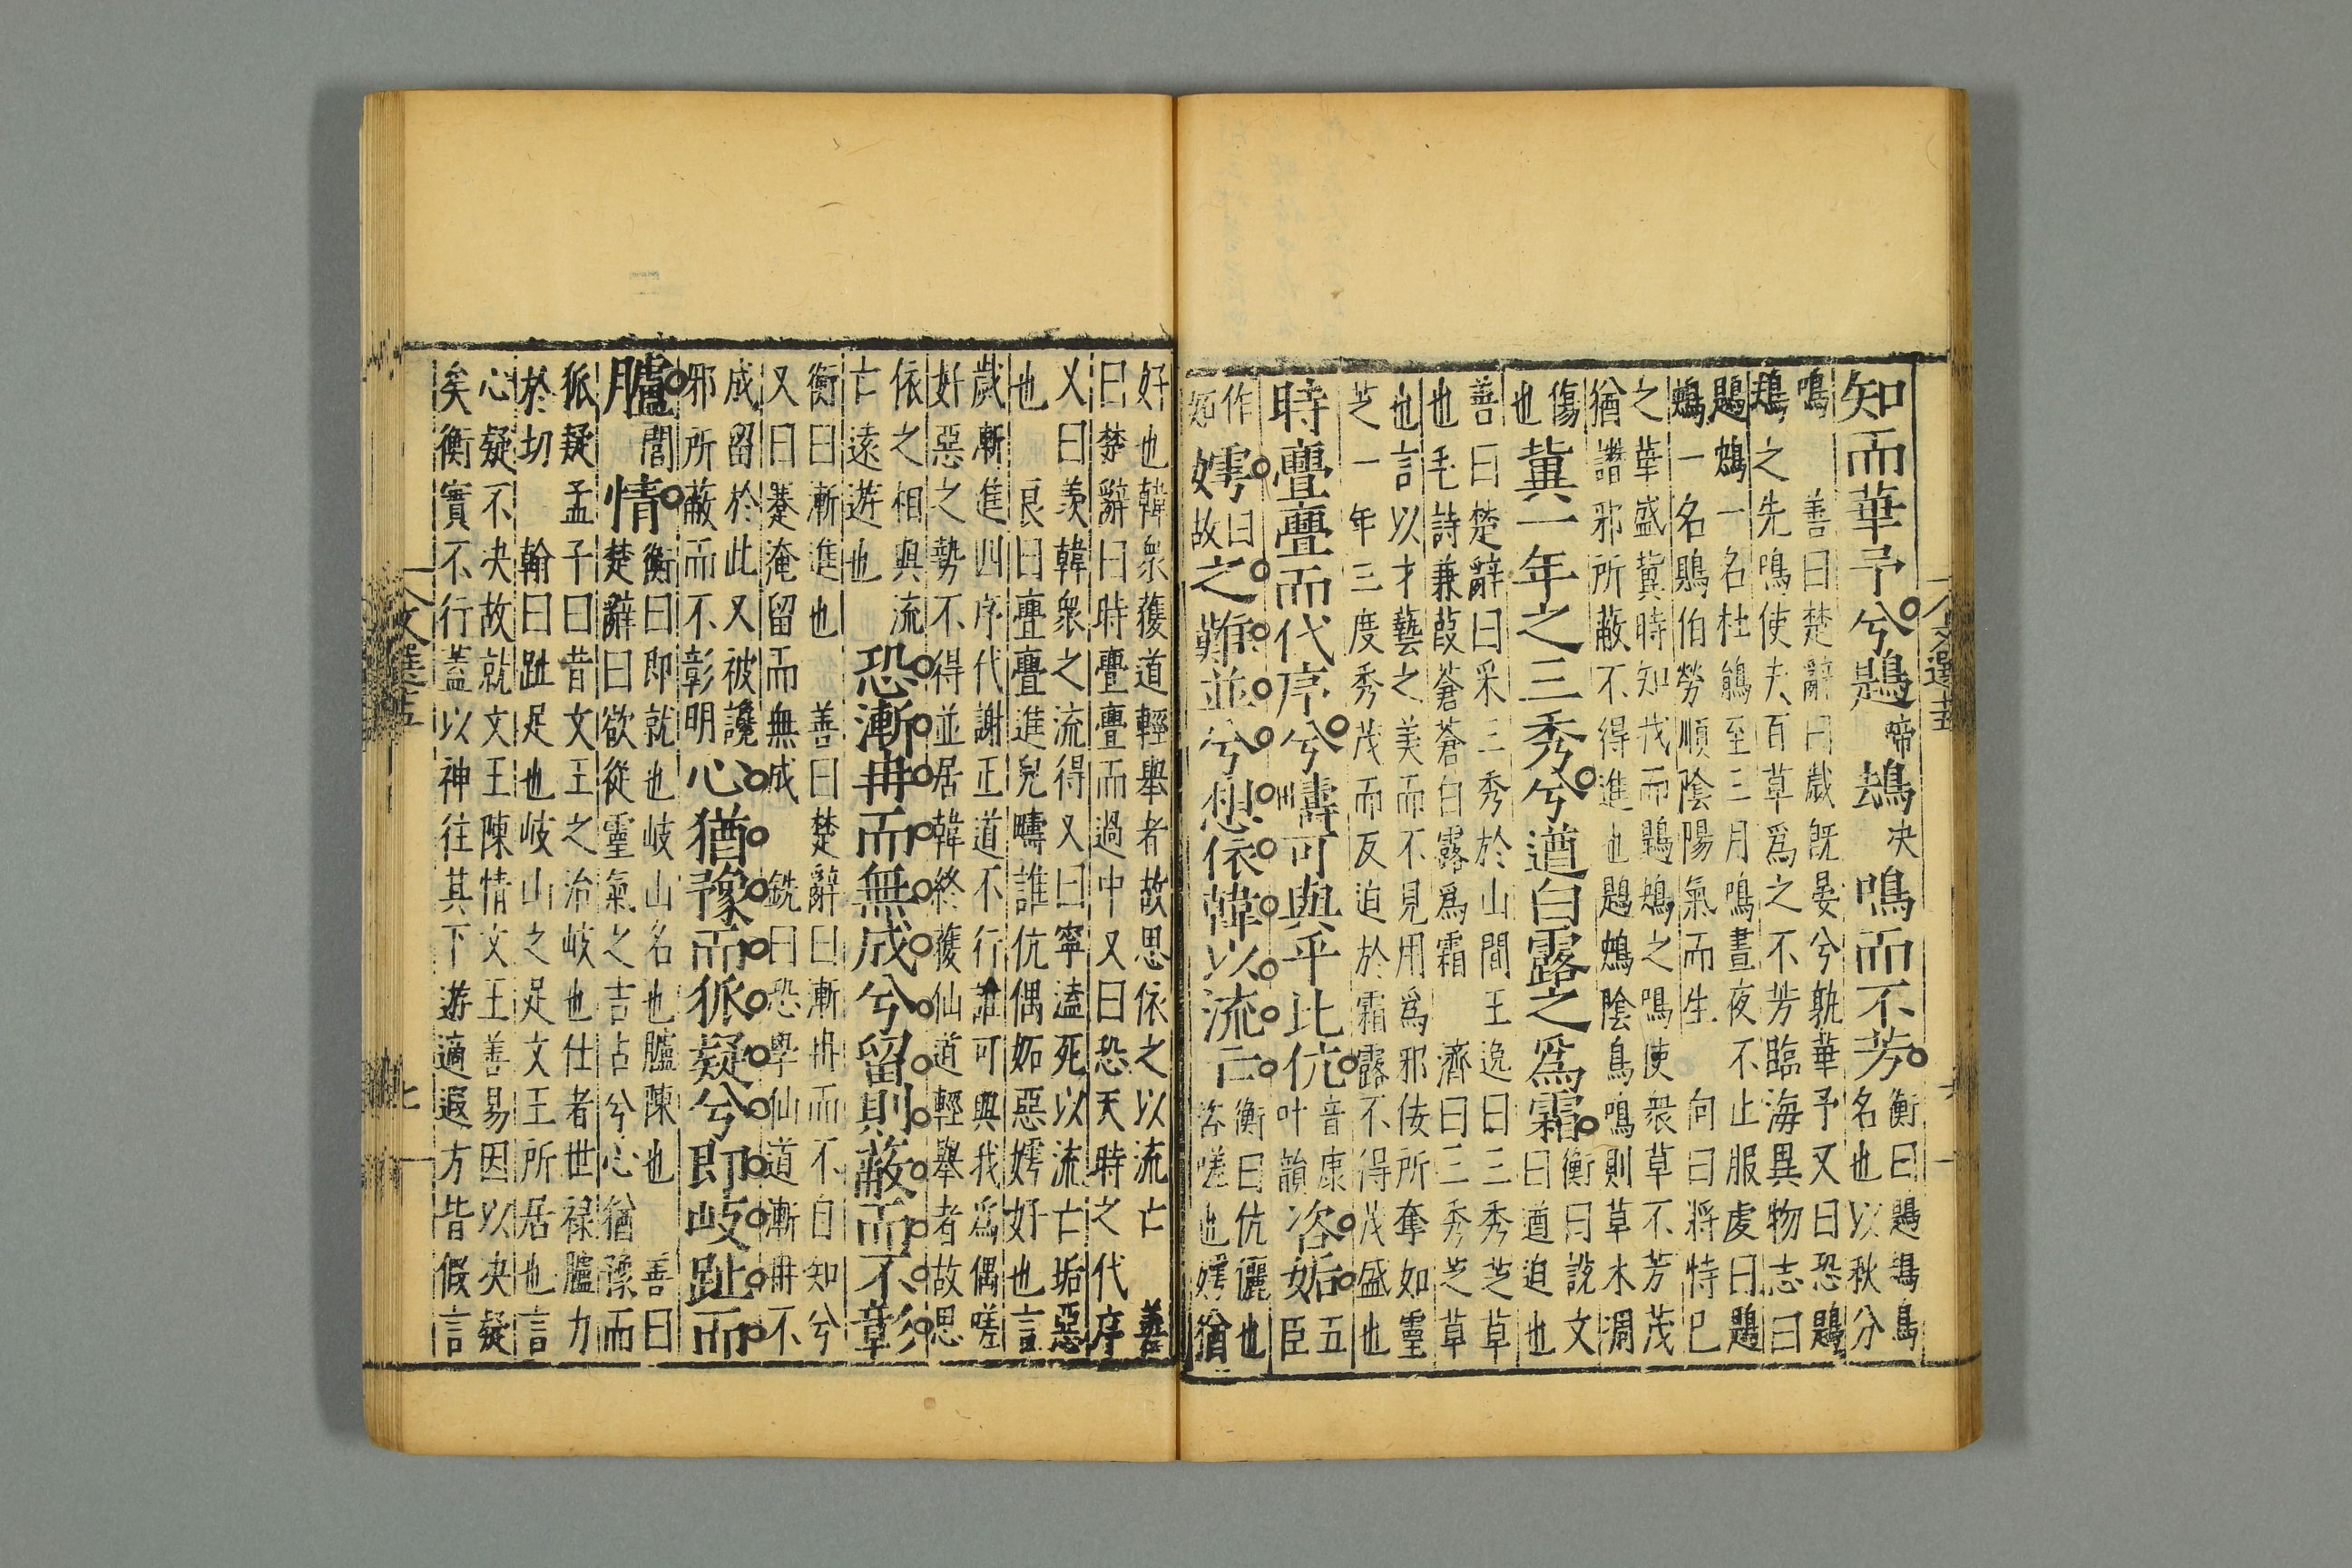 文選十五
六
知而華予兮鶗啼鴂决鳴而不芳衡曰鶗鴂鳥
名也以秋分
鳴 善曰楚辭曰歲既晏兮孰華予又曰恐鶗
鴂之先鳴使夫百草爲之不芳臨海異物志曰
鶗鴂一名杜鵑至三月鳴晝夜不止服虔曰鶗
鴂一名鵙伯勞順陰陽氣而生 向曰將恃已
之華盛冀時知我而鶗鴂之鳴使衆草不芳茂
猶譖邪所蔽不得進也鶗鴂陰鳥鳴則草木凋
傷
也
冀一年之三秀兮遒白露之爲霜衡曰說文
曰遒迫也
善曰楚辭曰采三秀於山間王逸曰三秀芝草
也毛詩兼葭蒼蒼白露爲霜 濟曰三秀芝草
也言以才藝之美而不見用爲邪佞所奪如靈
芝一年三度秀茂而反迫於霜露不得茂盛也
時亹亹而代序兮疇可與乎比伉音康
叶韻
咨姤五
臣
作
妬
嫮曰
故
之難並兮想依韓以流亡衡曰伉儷也
咨嗟也嫮猶
好也韓衆獲道輕舉者故思依之以流亡 善
曰楚辭曰時亹亹而過中又曰恐天時之代序
又曰羨韓衆之流得又曰寧溘死以流亡垢惡
也 良曰亹亹進皃疇誰伉偶妬惡嫮好也言
歲漸進四序代謝正道不行誰可與我爲偶嗟
好惡之勢不得並居韓終獲仙道輕舉者故思
依之相與流
亡遠遊也
恐漸冉而無成兮留則蔽而不彰
衡曰漸進也 善曰楚辭曰漸冉而不自知兮
又曰蹇淹留而無成 銑曰恐學仙道漸冉不
成留於此又被讒
邪所蔽而不彰明
心猶豫而狐疑兮即岐趾而
臚閭情衡曰即就也岐山名也臚陳也 善曰
楚辭曰欲從靈氣之吉占兮心猶豫而
狐疑孟子曰昔文王之治岐也仕者世禄臚力
於切 翰曰趾足也岐山之足文王所居也言
心疑不决故就文王陳情文王善易因以决疑
矣衡實不行蓋以神往其下遊適遐方皆假言
文選十五
七